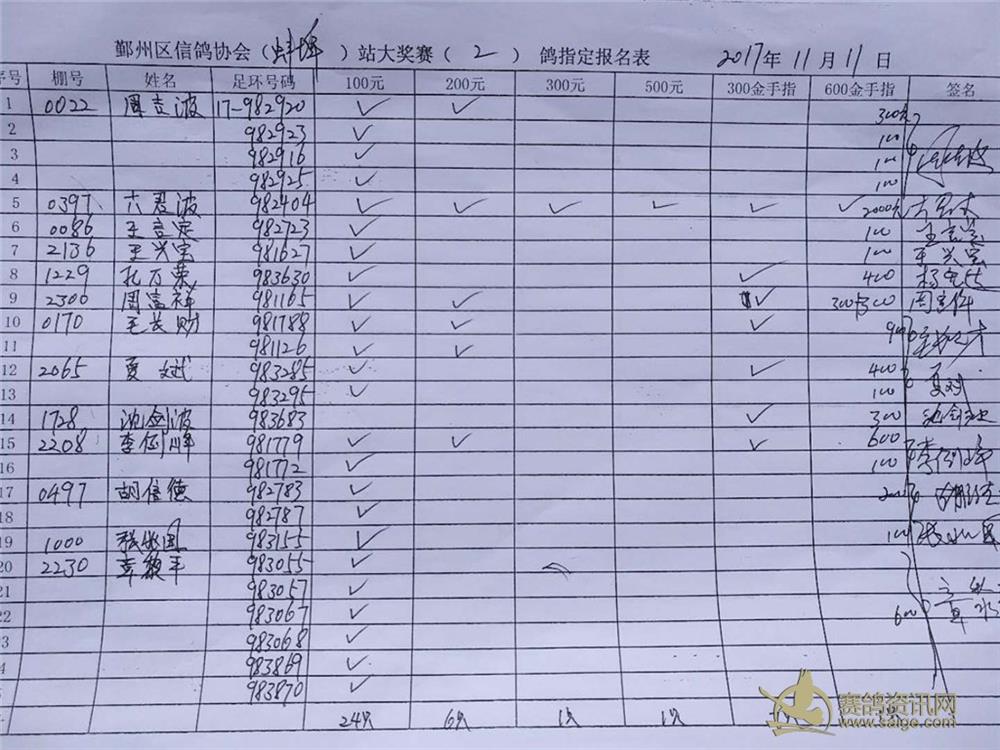 鄞州区信鸽协会（蚌埠）站大奖赛（2）鸽指定报名表 2017年11月11日
序号 棚号 姓名 足环号码 100元 200元 300元 500元 300金手指 600金手指 签名
1 0022 周吉波 17-982920 ✓ ✓ 300元
2 982923 ✓ 100
3 982916 ✓ 100
4 982925 ✓ 100
5 0397 六君波 982404 ✓ ✓ ✓ ✓ ✓ ✓ 2000元
6 0086 王言定 982723 ✓ 100
7 2136 王兴宝 981627 ✓ 100 王兴宝
8 1229 孔万荣 983630 ✓ ✓ 400
9 2300 周富祥 981165 ✓ ✓ ✓
10 0170 毛长财 981788 ✓ ✓ ✓
11 981126 ✓ ✓
12 2065 夏斌 983285 ✓ ✓ 400
13 983295 ✓ 100
14 1728 沈剑波 983683 ✓ 300
15 2208 李剑峰 981779 ✓ ✓ ✓ 600
16 981772 ✓ 100 李剑峰
17 0497 胡信德 982783 ✓ 200
18 982787 ✓
19 1000 983155 ✓ 100
20 2230 983055 ✓
21 983057 ✓
22 983067 ✓ 600
23 983068 ✓
4 983869 ✓
983870 ✓
24只 6只 1只 1只
赛鸽资讯网
www.saige.com